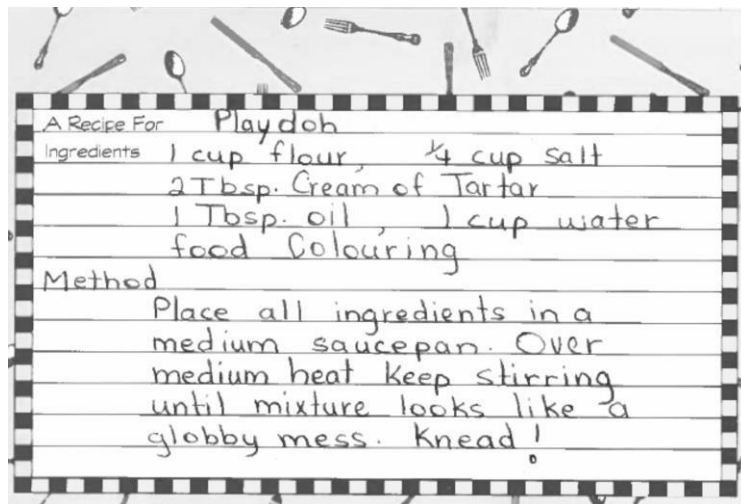 A Recipe For Playdoh
Ingredients 1 cup flour, 1/4 cup salt
2 Tbsp. Cream of Tartar
1 Tbsp. oil, 1 cup water
food Colouring
Method
Place all ingredients in a
medium saucepan. Over
medium heat keep stirring
until mixture looks like a
globby mess. Knead!